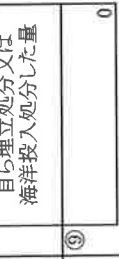 自ら埋立処分又は
海洋投入処分した量
⑨
0